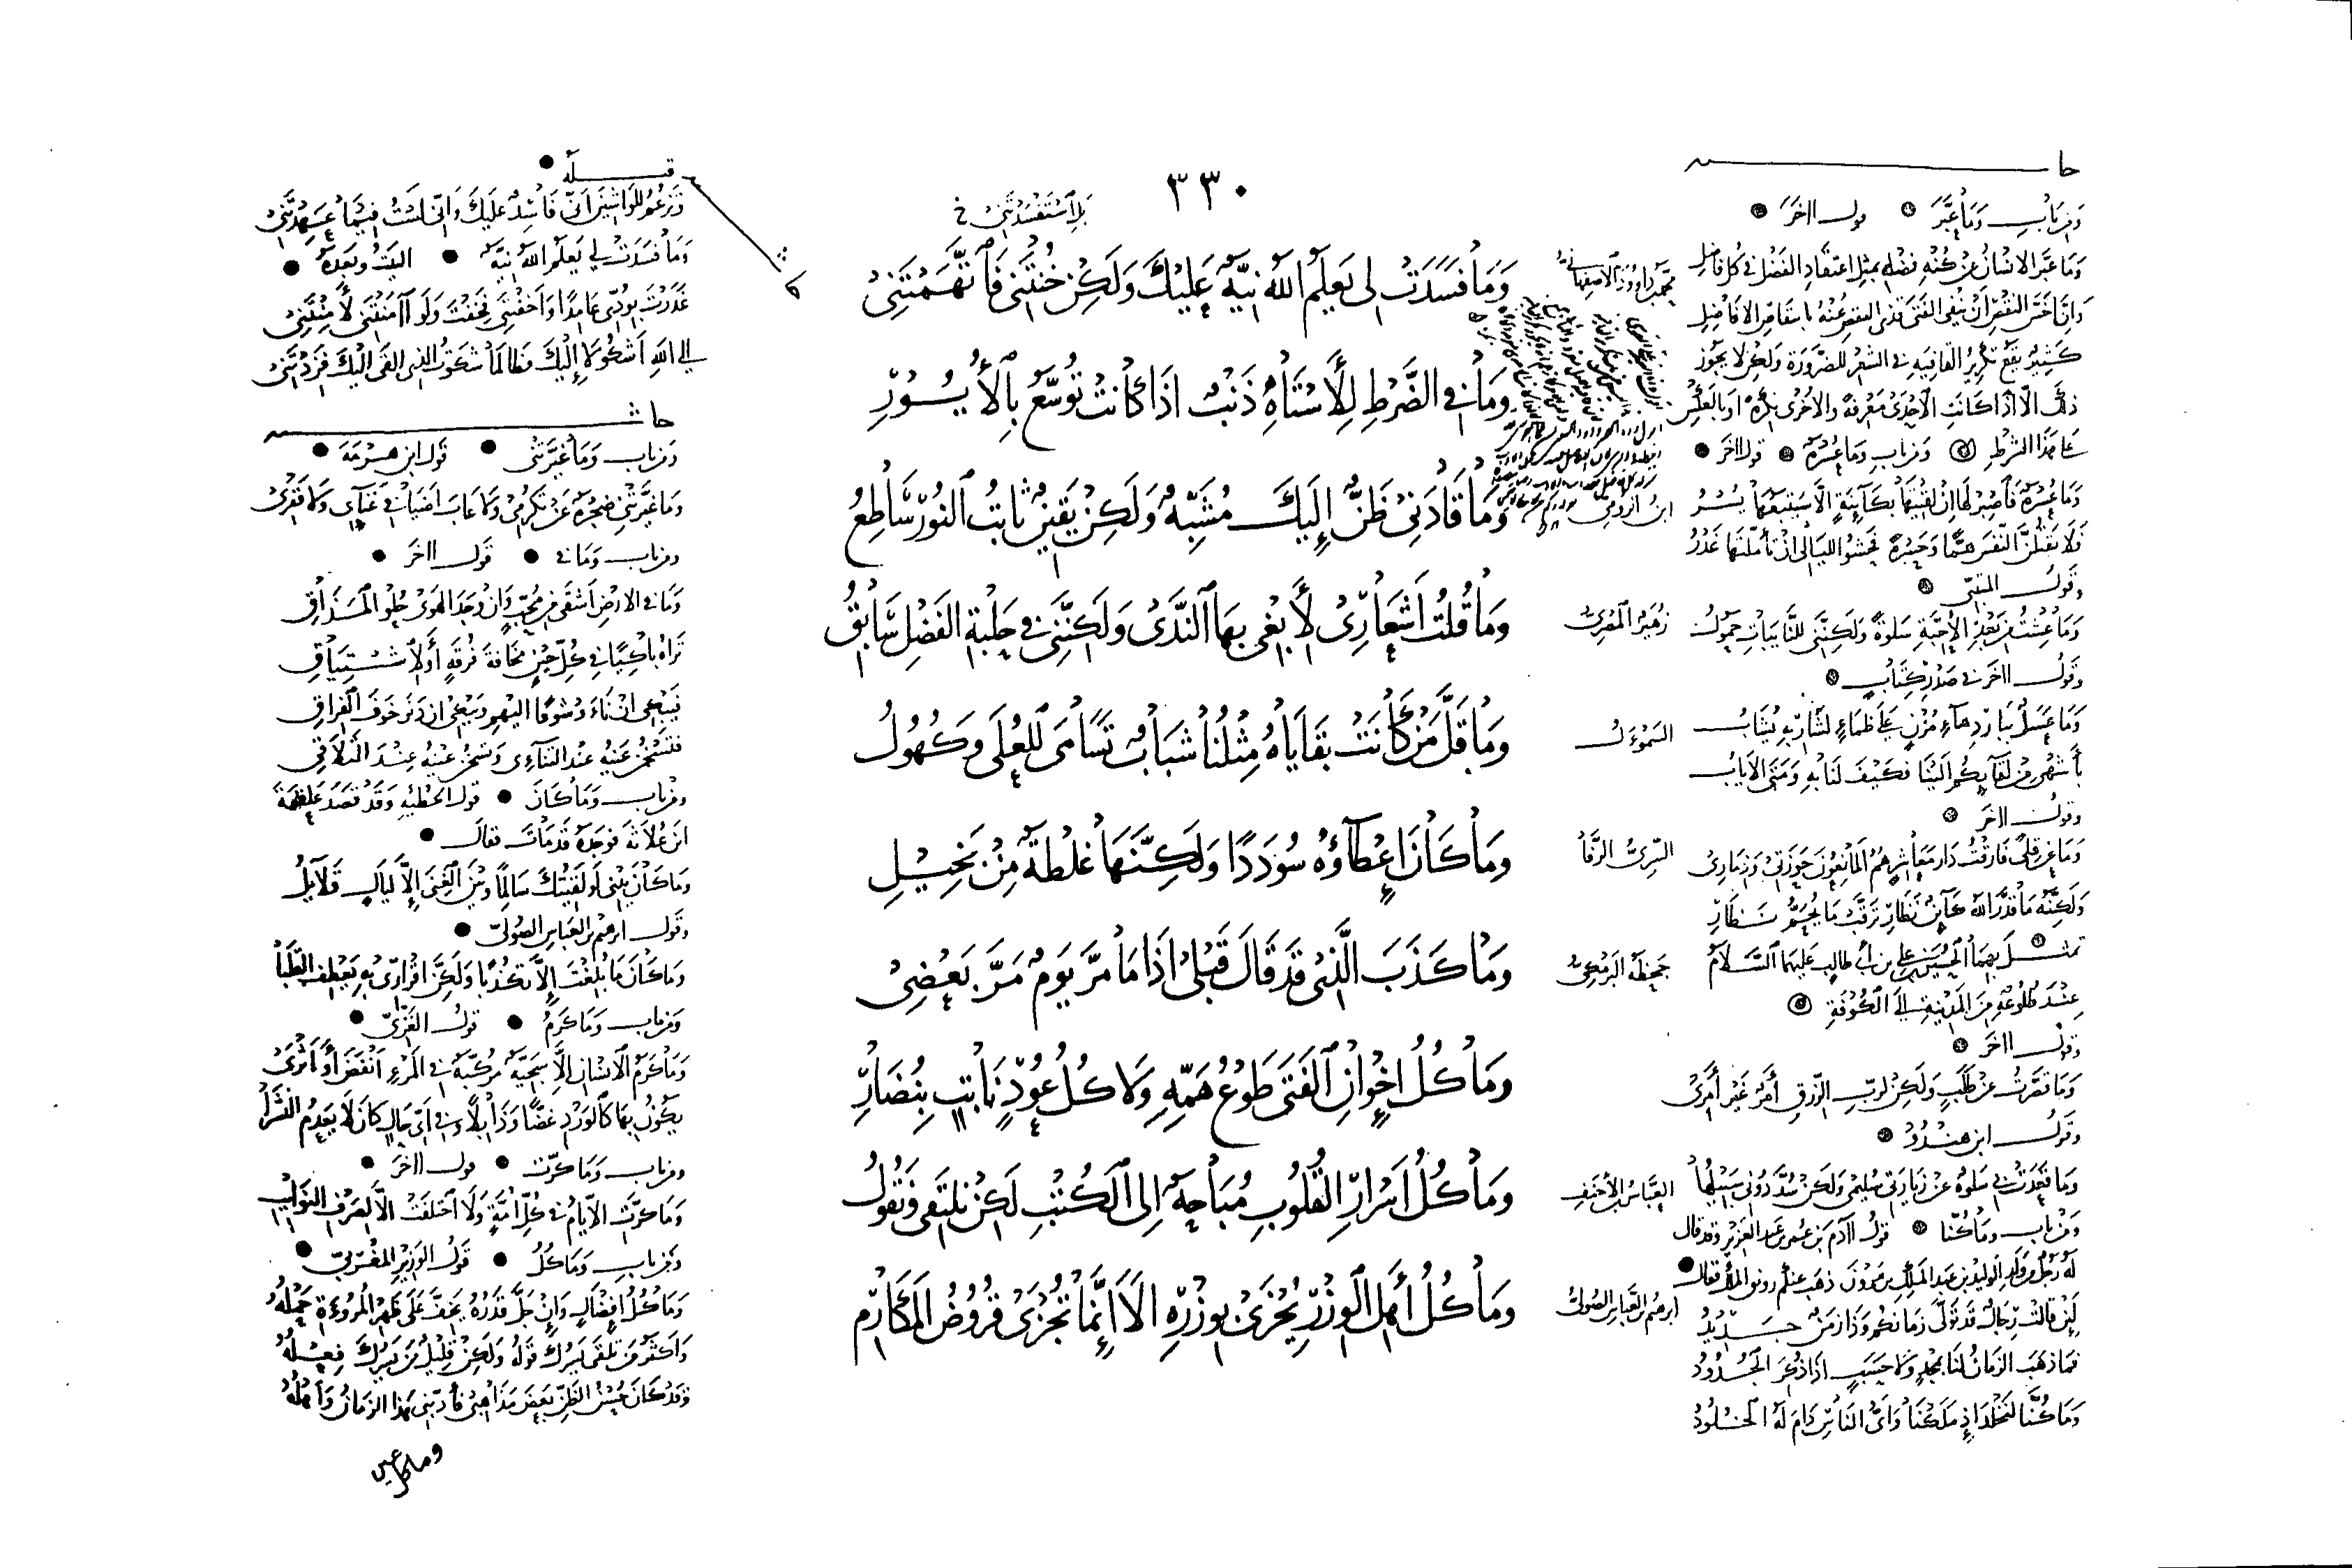 ٣٣٠
بَلِ ٱسْتَفْسَدْتَنِي خ
وَمَا فَسَدَتْ لِي يَعْلَمُ اللهُ نِيَّةٌ عَلَيْكَ وَلَكِنْ خُنْتَنِي فَاتَّهَمْتَنِي
وَمَا فِي الضَّرْطِ لِلْأَسْتَاهِ ذَنْبٌ اذَا كَانَتْ تُوَسَّعُ بِالْأُيُورِ
وَمَا قَادَنِي ظَنٌّ إِلَيْكَ مُشَبِّهٌ وَلَكِنْ يَقِينٌ ثَابِتُ النُّورِ سَاطِعُ
وَمَا قُلْتُ أَشْعَارِي لِأَبْغِي بِهَا النَّدَى وَلَكِنَّنِي فِي حَلْبَةِ الفَضْلِ سَابِقُ
وَمَا قَلَّ مَنْ كَانَتْ بَقَايَاهُ مِثْلَنَا شَبَابٌ تَسَامَى لِلْعُلَى وَكُهُولُ
وَمَا كَانَ إِعْطَآؤُهُ سُودَدًا وَلَكِنَّهَا غَلْطَةٌ مِنْ بَخِيلِ
وَمَا كَذَبَ الَّذِي قَدْ قَالَ قَبْلِي اذَا مَا مَرَّ يَوْمٌ مَرَّ بَعْضِي
وَمَا كُلُّ اخْوَانِ الْفَتَى طَوْعُ هَمِّهِ وَلَا كُلُّ عُودٍ نَابِتٍ بِنُضَارِ
وَمَا كُلُّ اسْرَارِ القُلُوبِ مُبَاحَةٌ إِلَى الْكُتْبِ لَكِنْ نَلْتَقِي وَنَقُولُ
وَمَا كُلُّ أَهْلِ الْوِزْرِ يُجْزَى بِوِزْرِهِ الَا إِنَّمَا تُجْزَى قُرُوضُ المَكَارِمِ
محمد بن داود الاصفهاني
ابن الرومي
زهير المصري
السموءل
السري الرفا
جحظة البرمكي
العباس بن الأحنف
ابرهيم بن العباس الصولي
حا
وَمِن بَابِ وَمَا عَبَّرَ قول ااخَرَ
وَمَا عَبَّرَ الانسَانُ عَنْ كُنْهِ فَضْلِهِ بِمِثْلِ اعْتِقَادِ الفَضْلِ فِي كُلِّ فَاضِلِ
وَانَّ اخَسَّ النَّقْصِ أَنْ يَنْفِيَ الفَتَى قَذَى النَّقْصِ عَنْهُ بانتقاصِ الافَاضِلِ
كَثِيرٌ يَقَعُ تَكْرِيرُ القَافِيَةِ فِي الشعْرِ للضَّرُورَةِ وَلَكِنْ لا يَجُوزُ
ذَلِكَ الَّا اذَا كَانَتِ الْاحْدَى مَعْرِفَةً وَالأُخْرَى نَكِرَةً او بالعَكْسِ
عَلَى هَذَا الشَّرْطِ وَمِن بَابِ وَمَا عُسْرَةٌ قول ااخَرَ
وَمَا عُسْرَةٌ فَاصْبِرْ لَهَا انْ لَقِيتَهَا بِكَائِنَةٍ الَّا سَيَتْبَعُهَا يُسْرُ
وَقَولُ المتنبّي
وَمَا عِشْتُ مِنْ بَعْدِ الأَحِبَّةِ سَلْوَةً وَلَكِنَّنِي لِلنَّائِبَاتِ حَمُولُ
وَقَولُ ااخَر فِي صَدْرِ كِتَابٍ
وَمَا عَسَلٌ بِبَارِدِ مَآءِ مُزْنٍ عَلَى ظَمَاءٍ لِشَارِبِهِ يُشَابُ
بِأَشْهَى مِنْ لِقَائِكُمُ الَيْنَا فَكَيْفَ لَنَا بِهِ وَمَتَى الايَابُ
وَقَولُ ااخَر
وَمَا عَنْ قِلًى فَارَقْتُ دَارَ مَعَاشِرٍ هُمُ الْمَانِعُونَ حَوْزَتِي وَذِمَارِي
وَلَكِنَّهُ مَا قَدَّرَ اللهُ كَائِنٌ نَظَارِ تَرَقَّبْ مَا يُحَمُّ نَظَارِ
تمثَّلَ بِهِمَا الحُسَيْنُ بن علي بن أَبِي طَالِبٍ عَلَيهِمَا السَّلَامُ
عِنْدَ طُلُوعِهِ مِنَ المَدِينَةِ إِلَى الكُوفَةِ
وَقَولُ ااخَر
وَمَا قَصَّرْتُ عَنْ طَلَبٍ وَلَكِنْ لِرَبِّ الرِّزْقِ أَمْرٌ غَيْرُ أَمْرِي
وَقَولُ ابن هِنْدُو
وَمَا قَعَدَتْ بِي سَلْوَةٌ عَنْ زِيَارَتِي سُلَيْمَى وَلَكِنْ سُدَّ دُونِي سَبِيلُهَا
وَمِنْ بَابِ وَمَا كُنَّا قَولُ اادَمَ بن عُمَر بن عَبد العَزِيزِ وَقَد قال
لَهُ رَجُلٌ مِن وَلَدِ الوَلِيدِ بن عَبدِ المَلِكِ بن مَرْوَنَ ذَهَبَ عَنكُم رونق الملك فقال
لَئِنْ قَالَتْ رِجَالٌ قَد تَوَلَّى زَمَانُكُمُ وَذَا زَمَنٌ جَدِيدُ
فَمَا ذَهَبَ الزمَانُ لَنَا بِمَجْدٍ وَلا حَسَبٍ اذَا ذُكِرَ الجُدُودُ
وَمَا كُنَّا لِنَخْلُدَ اذْ مَلَكْنَا وَأَيُّ النَاسِ دَامَ لَهُ الخُلُودُ
قبله
وَتَزْعُمُ لِلْوَاشِينَ أَنِّي فَاسِدٌ عَلَيْكَ وَانِّي لَسْتُ فِيمَا عَهِدْتَنِي
وَمَا فَسَدَتْ لِي يَعْلَمُ اللهُ نِيَّةٌ البَيتُ وَبَعْدَهُ
غَدَرْتَ بِوُدِّي عَامِدًا وَأَخَفْتَنِي فَخِفْتَ وَلَو اامَنْتَنِي لأَمِنْتَنِي
إِلَى اللهِ أَشْكُو لَا إِلَيْكَ فَطَالَمَا شَكَوْتُ الذِي القَى الَيْكَ فَزِدْتَنِي
حاش
وَمِن بَاب وَمَا غَيَّرَتْنِي قَول ابن هَرْمَةَ
وَمَا غَيَّرَتْنِي ضَجْرَةٌ عَنْ تَكَرُّمِي وَلَا عَابَ اضْيَافِي غَنَآيِ وَلا فَقْرِي
وَمِن بَاب وَمَا فِي قَول ااخَر
وَمَا فِي الارْضِ أَشْقَى مِنْ مُحِبٍّ وَانْ وَجَدَ الهَوَى حُلْوَ المَذَاقِ
تَرَاهُ بَاكِيًا فِي كُلِّ حِينٍ مَخَافَةَ فُرْقَةٍ أَو لاشْتِيَاقِ
فَيَبْكِي انْ نَأَوْا شَوْقًا الَيْهِم وَيَبْكِي انْ دَنَوْ خَوْفَ الفِرَاقِ
فَتَسْخُنُ عَيْنُهُ عِنْدَ التَنَآءِي وَتَسْخُنُ عَيْنُهُ عِنْدَ التَلَاقِي
وَمِن بَاب وَمَا كَانَ قول الحُطَيْئَةِ وَقَدْ قَصَدَ عَلْقَمَةَ
ابن عُلَاثَةَ فَوَجَدَهُ قَدْ مَاتَ فقَالَ
وَمَا كَانَ بَيْنِي لَو لَقِيتُكَ سَالِمًا وَبَيْنَ الغِنَى إِلَّا لَيَالٍ قَلَآيِلُ
وَقَول ابرهيم بن العَبَاس الصُولِي
وَمِن بَاب وَمَا كَرَمُ قَولُ الغَزِّيّ
وَمَا كَرَمُ الْانسَانِ الَّا سَجِيَّةٌ مُرَكَّبَةٌ فِي المَرْءِ انْفَضَ أَو أَثْرَى
وَمِن بَاب وَمَا كَرَّت قول ااخَر
وَمَا كَرَّتِ الْايَّامُ فِي كُلِّ أُمَّةٍ وَلَا اخْتَلَفَتْ الَّا لِصَرْفِ النَوَائِبِ
وَمِن بَابِ وَمَا كُلُّ قَولُ الوَزِيرِ المَغْرِبِيّ
وَمَا كُلُّ افْضَالٍ وَإِنْ جَلَّ قَدْرُهُ يَخِفُّ عَلَى ظَهْرِ المُرُوءَةِ حَمْلُهُ
وَأَكْثَرُ مَن تَلْقَى يَسُرُّكَ قَولُهُ وَلَكِنْ قَلِيلٌ مَن يَسُرُّكَ فِعْلُهُ
وَقَدْ كَانَ حُسْنُ الظَّنِّ بَعْضَ مَذَاهِبِي فَأَدَّبَنِي هَذَا الزمَانُ وَأَهْلُهُ
وما كل عين